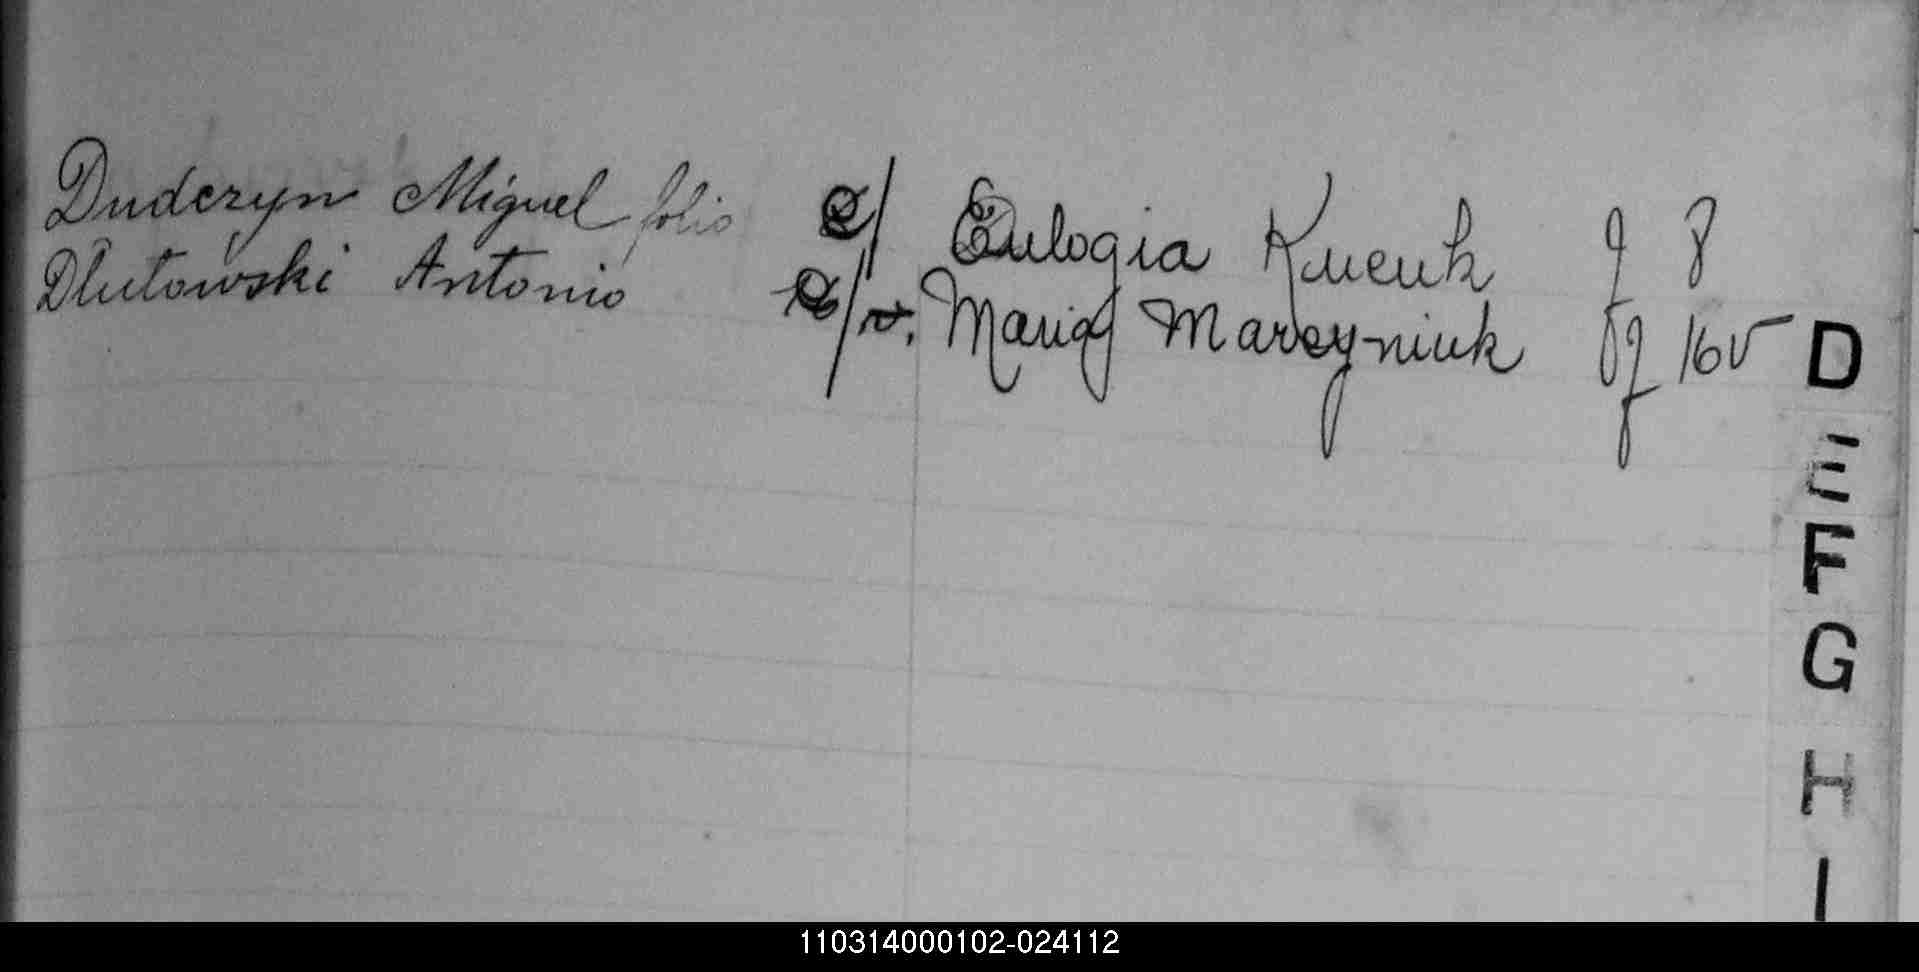 Dudczyn Miguel folio c/ Eulogia Kucuk f 8
Dlutowski Antonio c/ Maria Marcyniuk f 16v
D
E
F
G
H
I
110314000102-024112